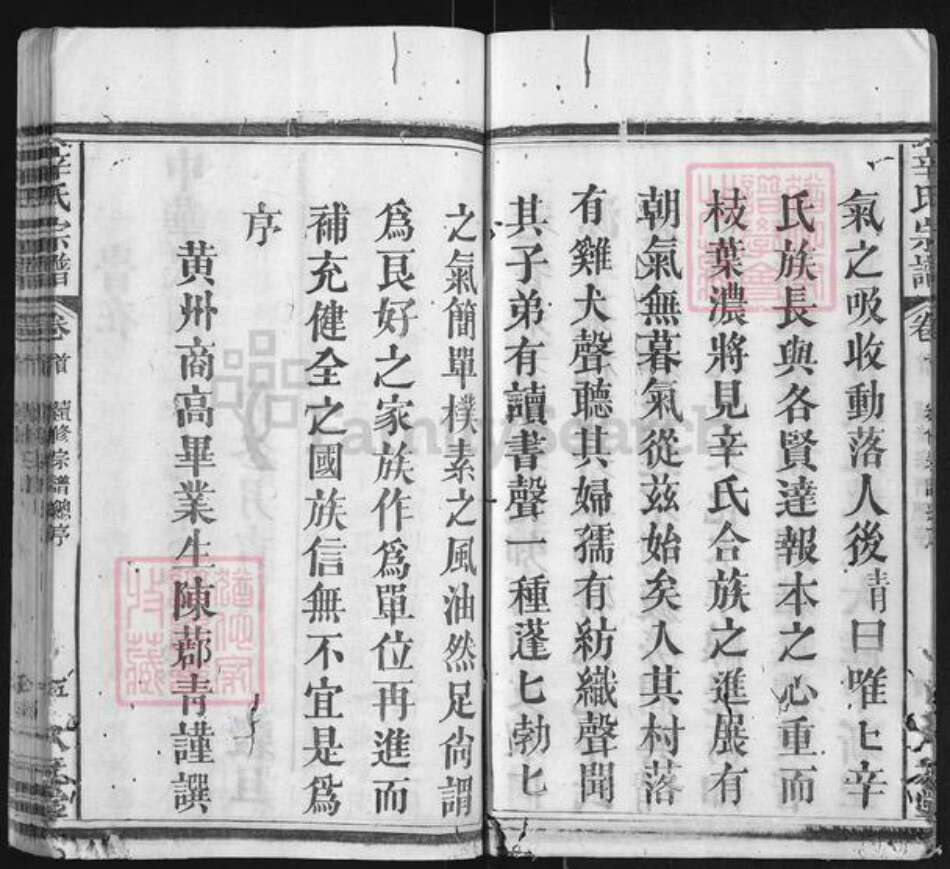 氣之吸收動落人後青曰唯匕辛
氏族長與各賢達報本之心重而
枝葉濃將見辛氏合族之進展有
朝氣無暮氣從茲始矣人其村落
有雞犬聲聽其婦孺有紡織聲聞
其子弟有讀書聲一種蓬匕勃匕
之氣簡單樸素之風油然足尙謂
爲良好之家族作爲單位再進而
補充健全之國族信無不宜是爲
序
黄州商高畢業生陳蘄青謹譔
辛氏宗譜
卷首
續修宗譜總序
五
FamilySearch